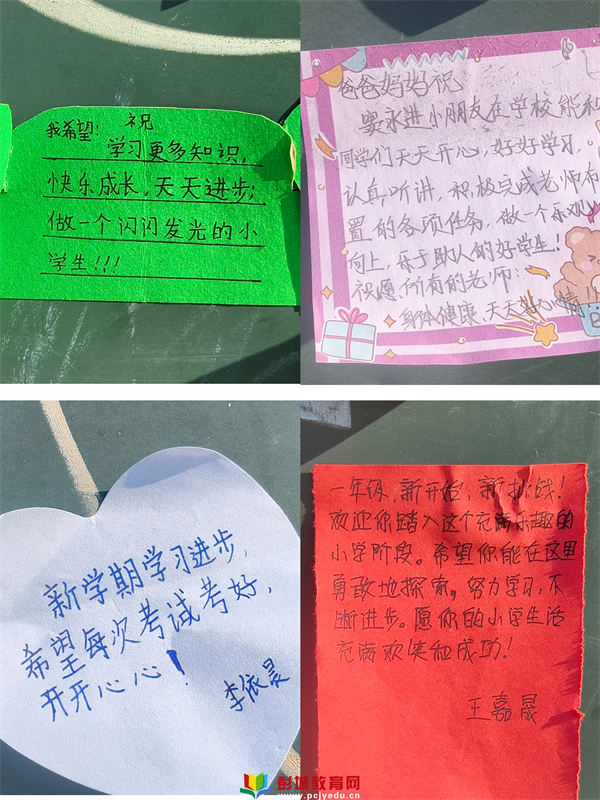 我希望: 祝
学习更多知识,
快乐成长,天天进步;
做一个闪闪发光的小
学生!!!
爸爸妈妈祝
窦永进小朋友在学校能和
同学们天天开心,好好学习,
认真听讲,积极完成老师布
置的各项任务,做一个乐观
向上,乐于助人的好学生!
祝愿所有的老师:
身体健康、天天好心情
新学期学习进步,
希望每次考试考好,
开开心心!
李依晨
一年级,新开始,新挑战!
欢迎你踏入这个充满乐趣的
小学阶段。希望你能在这里
勇敢地探索。努力学习,不
断进步。愿你的小学生活
充满欢笑和成功!
王嘉晟
彭城教育网
www.pcjyedu.cn